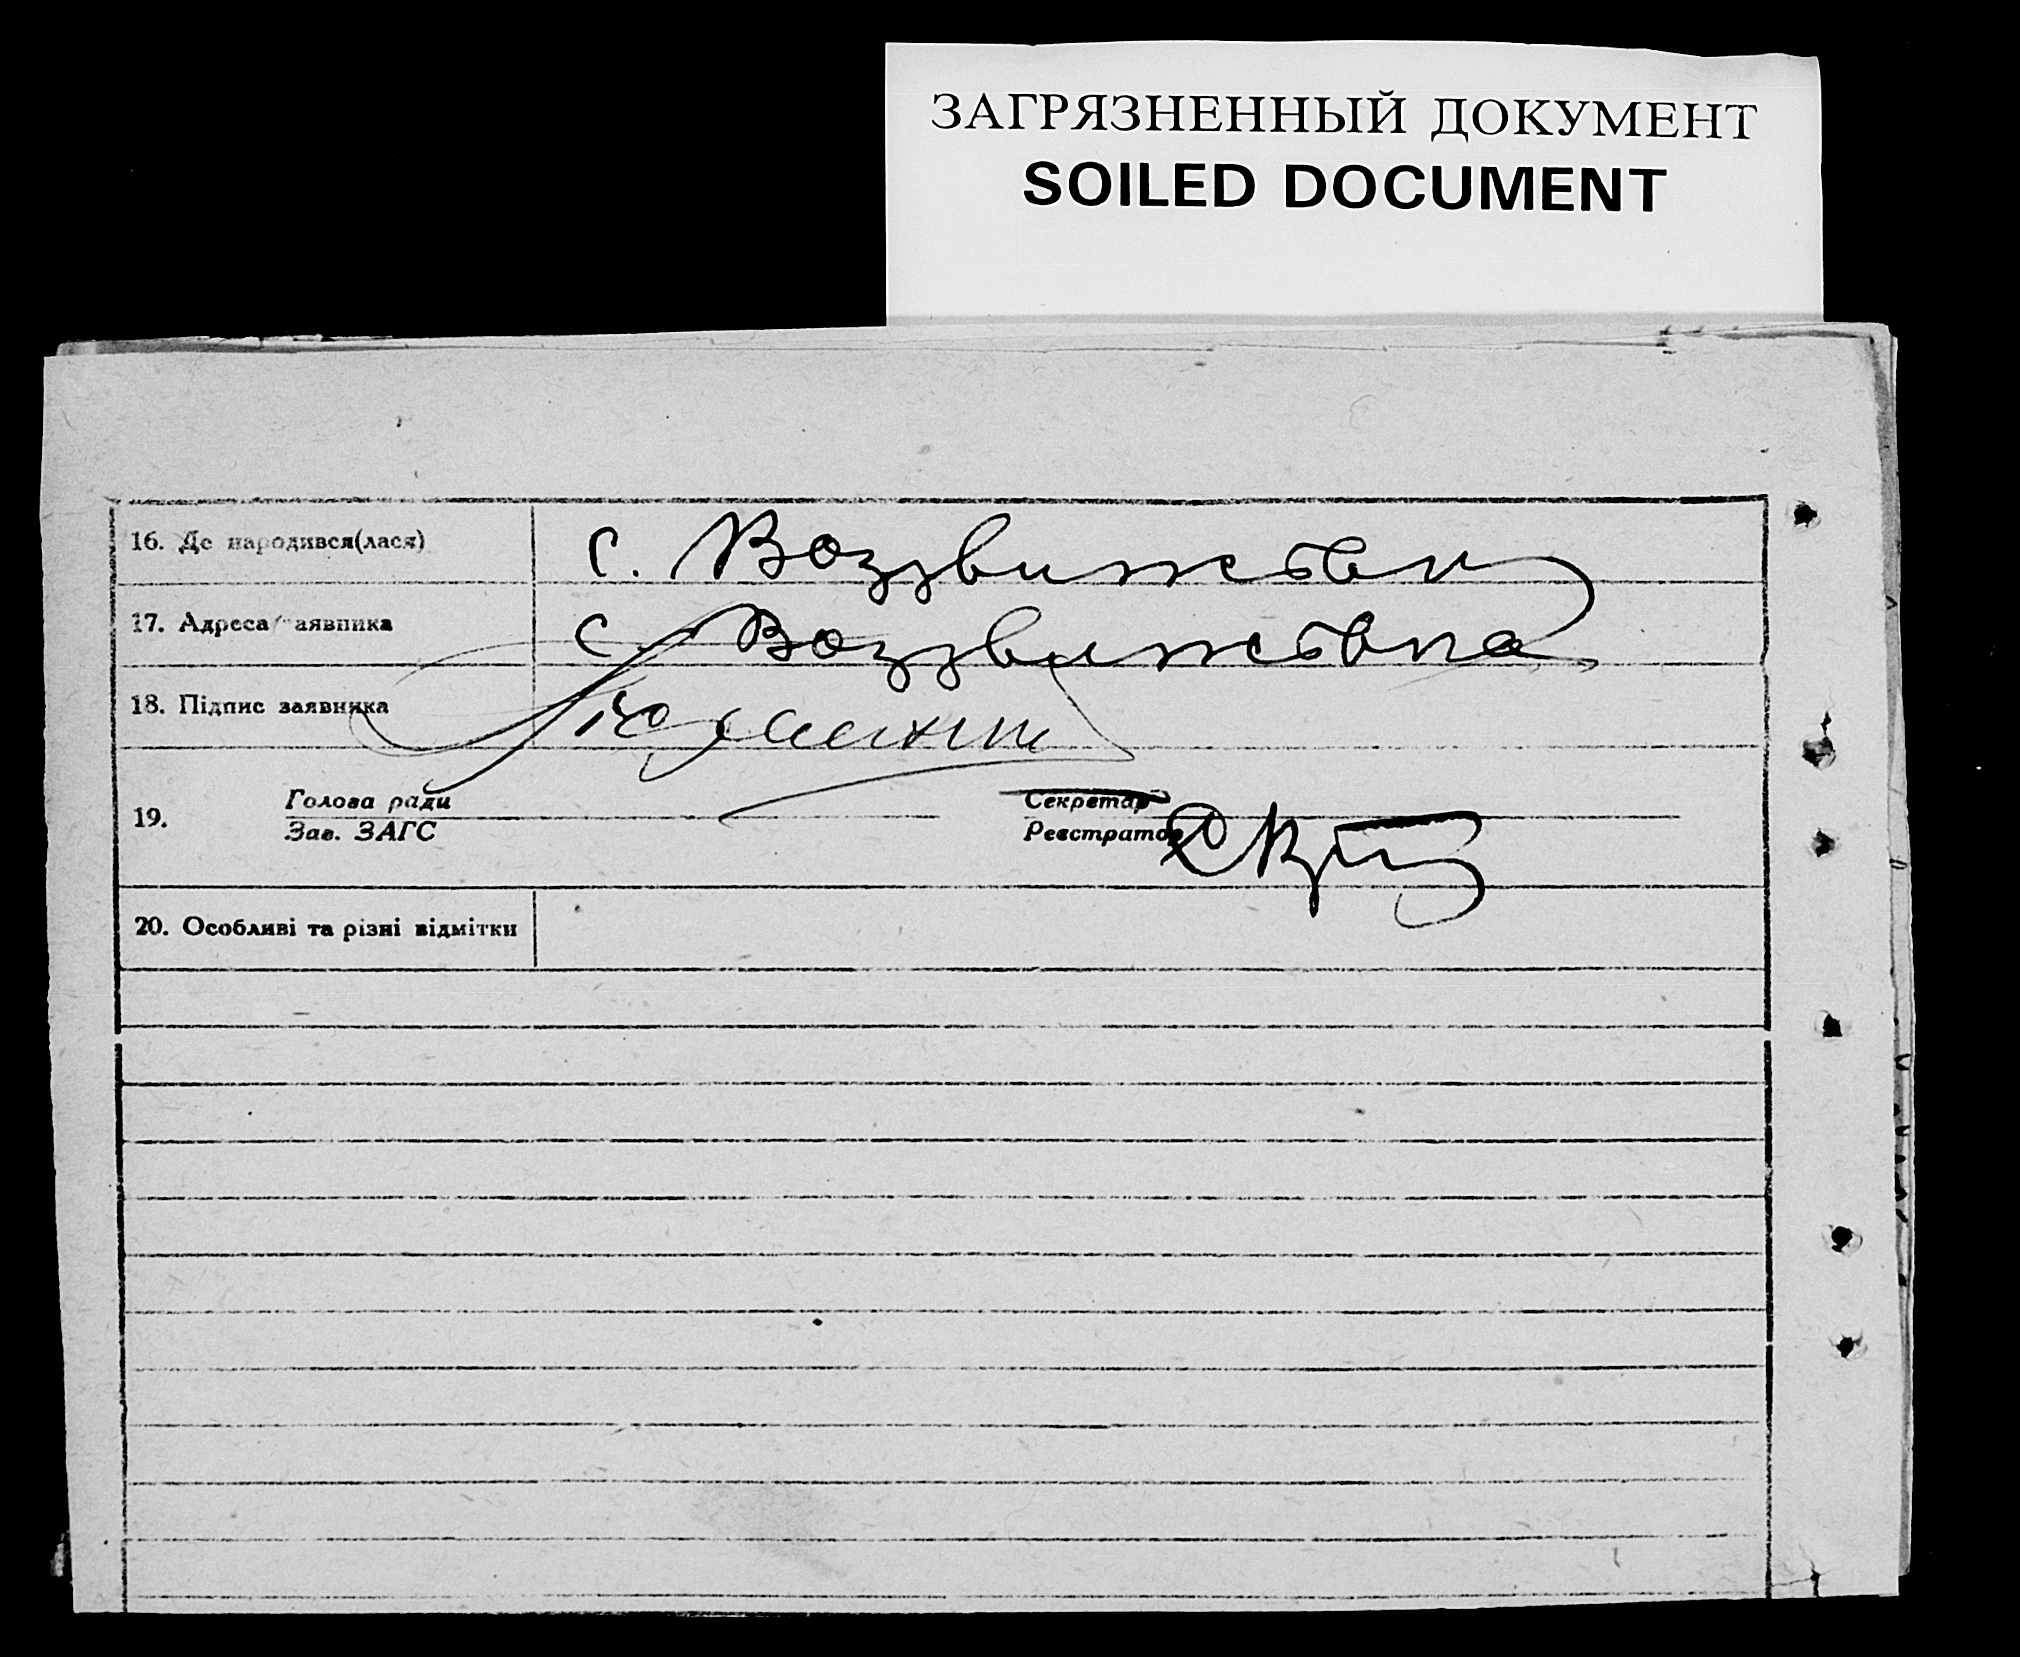 ЗАГРЯЗНЕННЫЙ ДОКУМЕНТ
SOILED DOCUMENT
16. Де народився(лася) с. Воздвижевки
17. Адреса заявника с. Воздвижевка
18. Підпис заявника
19. Голова ради Секретар
Зав. ЗАГС Реєстратор
20. Особливі та різні відмітки